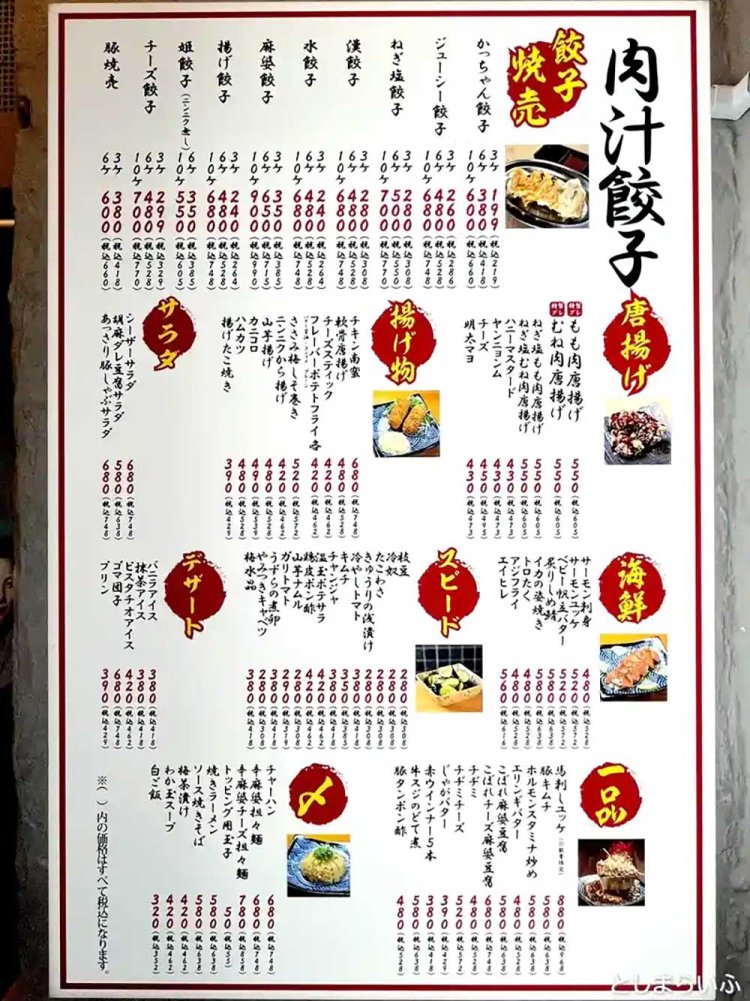 肉汁餃子
餃子
焼売
かっちゃん餃子 3ケ 199(税込219)
6ケ 380(税込418)
10ケ 600(税込660)
ジューシー餃子 3ケ 260(税込286)
6ケ 480(税込528)
10ケ 680(税込748)
ねぎ塩餃子 3ケ 280(税込308)
6ケ 500(税込550)
10ケ 700(税込770)
漢餃子 3ケ 280(税込308)
6ケ 480(税込528)
10ケ 680(税込748)
水餃子 3ケ 240(税込264)
6ケ 480(税込528)
10ケ 680(税込748)
麻婆餃子 3ケ 350(税込385)
6ケ 650(税込715)
10ケ 900(税込990)
揚げ餃子 3ケ 240(税込264)
6ケ 480(税込528)
10ケ 680(税込748)
姫餃子(ニンニク無し) 6ケ 350(税込385)
10ケ 550(税込605)
チーズ餃子 3ケ 299(税込329)
6ケ 480(税込528)
10ケ 700(税込770)
豚焼売 3ケ 380(税込418)
6ケ 600(税込660)
唐揚げ
もも肉唐揚げ 550(税込605)
むね肉唐揚げ 550(税込605)
ねぎ塩もも肉唐揚げ 550(税込605)
ねぎ塩むね肉唐揚げ 550(税込605)
ハニーマスタード 430(税込473)
ヤンニョンム 430(税込473)
チーズ 450(税込495)
明太マヨ 430(税込473)
揚げ物
チキン南蛮 680(税込748)
軟骨唐揚げ 480(税込528)
チーズスティック 420(税込462)
フレーバーポテトフライ各 420(税込462)
ささみ梅しそ巻き 520(税込572)
ニンニクから揚げ 420(税込462)
山芋揚げ 480(税込528)
カニコロ 490(税込539)
ハムカツ 480(税込528)
揚げたこ焼き 390(税込429)
サラダ
シーザーサラダ 680(税込748)
胡麻ダレ豆腐サラダ 580(税込638)
あっさり豚しゃぶサラダ 680(税込748)
海鮮
サーモン刺身 480(税込528)
サーモンユッケ 520(税込572)
ベビー帆立バター 520(税込572)
炙りしめ鯖 580(税込638)
イカの姿焼き 580(税込638)
トロたく 480(税込528)
アジフライ 480(税込528)
エイヒレ 560(税込616)
スピード
枝豆 280(税込308)
冷奴
たこわさ
きゅうりの浅漬け
冷やしトマト
キムチ 350(税込385)
チャンジャ 380(税込418)
温玉ポテサラ 420(税込462)
鶏皮ポン酢
山芋ナムル
ガリトマト 290(税込319)
うずらの煮卵
やみつきキャベツ 280(税込308)
梅水晶 380(税込418)
デザート
バニラアイス 380(税込418)
抹茶アイス 380(税込418)
ピスタチオアイス 420(税込462)
ゴマ団子 680(税込748)
プリン 390(税込429)
一品
馬刺しユッケ 880(税込968)
豚キムチ 580(税込638)
ホルモンスタミナ炒め 580(税込638)
エリンギバター 480(税込528)
こぼれ麻婆豆腐 580(税込638)
こぼれチーズ麻婆豆腐 680(税込748)
チヂミ 480(税込528)
チヂミチーズ 520(税込572)
じゃがバター 390(税込429)
赤ウインナー5本 380(税込418)
牛スジのどて煮 580(税込638)
豚タンポン酢 480(税込528)
〆
チャーハン 680(税込748)
辛麻婆担々麺 680(税込748)
辛麻婆チーズ担々麺 780(税込858)
トッピング用玉子 50(税込55)
焼きラーメン 580(税込638)
ソース焼きそば 580(税込638)
梅茶漬け 420(税込462)
わか玉スープ 420(税込462)
白ご飯 320(税込352)
※( )内の価格はすべて税込になります。
としまらいふ